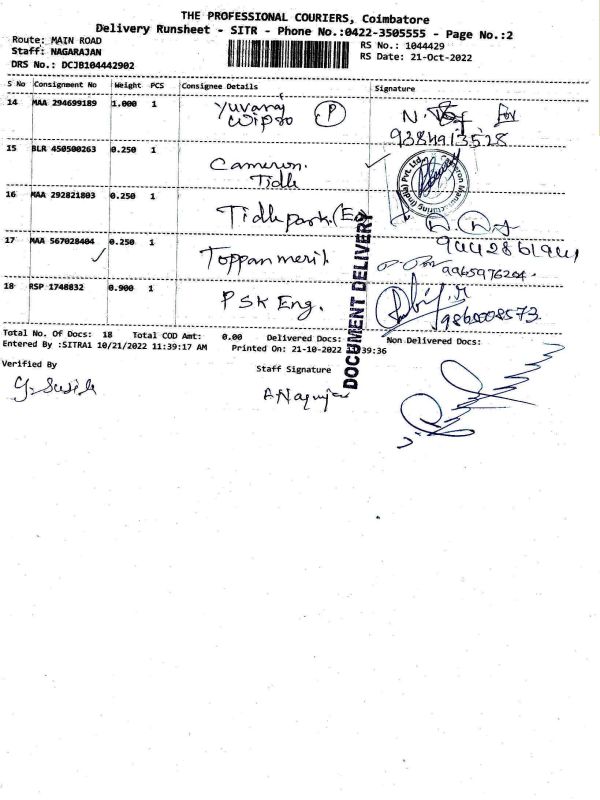 THE PROFESSIONAL COURIERS, Coimbatore
Delivery Runsheet - SITR - Phone No.:0422-3505555 - Page No.:2
Route: MAIN ROAD
RS No.: 1044429
Staff: NAGARAJAN
RS Date: 21-Oct-2022
DRS No.: DCJB104442902
S No Consignment No Weight PCS Consignee Details Signature
14 MAA 294699189 1.000 1 Yuvaraj Wipro P
For
9384913528
15 BLR 450500263 0.250 1 Cameron. Tidle
16 MAA 292821803 0.250 1 Tidle park.
17 MAA 567028404 0.250 1 Toppan meril
9965976204.
18 RSP 1748832 0.900 1 PSK Eng.
DOCUMENT DELIVERY
Total No. Of Docs: 18 Total COD Amt: 0.00 Delivered Docs: Non Delivered Docs:
Entered By :SITRA1 10/21/2022 11:39:17 AM Printed On: 21-10-2022 :39:36
Verified By
Staff Signature